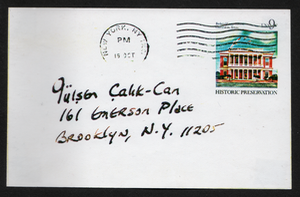 NEW YORK, NY
PM
19 OCT
9
HISTORIC PRESERVATION
Gülşen Çalık-Can
161 Emerson Place
Brooklyn, N.Y. 11205